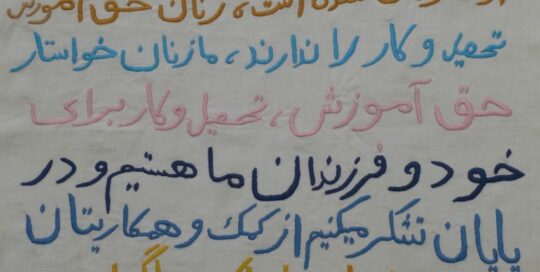 شده است، زنان حق آموزش
تحصیل و کار را ندارند، ما زنان خواستار
حق آموزش، تحصیل و کار برای
خود و فرزندان ما هستیم و در
پایان تشکر میکنیم از کمک و همکاریتان